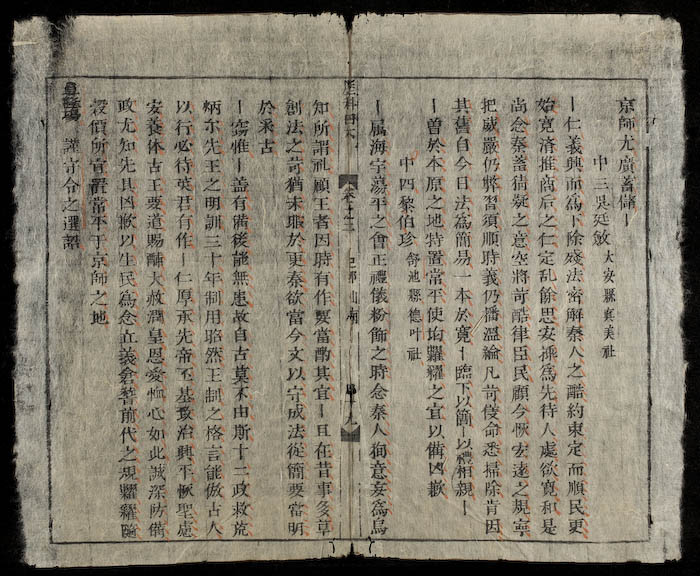 京師尤廣蓄儲〡
中三吳廷敏 大安縣襄美社
〡仁義興而爲下除殘法密解秦人之酷約束定而順民更
始寬洛推商后之仁定乱餘思安撫爲先待人處欲寬和是
尚念秦蓄猜疑之意空將苛酷律臣民顧今恢宏遠之規寧
把威嚴仍弊習須順時義仍播溫綸凡苛僾命悉掃除肯因
其舊自今日法爲簡易一本於寬〡臨下以簡〡以禮相親〡
〡曾於本原之地特置常平使均糶糴之宜以備凶歉
中四黎伯珍 舒池縣德叶社
〡属海宇蕩平之會正禮儀粉飾之時念秦人徇意妄爲烏
知所謂礼顧王者因時有作要當酌其宜〡且在昔事多草
創法之苛猶未暇於更奈欲當今文以守成法從簡要當明
於釆古
〡竊惟〡盖有備後能無患故自古莫不由斯十二政救荒
炳尔先王之明訓三十年制用昭然王制之格言能倣古人
以行必待英君有作〡仁厚承先帝丕基孜治興平恢聖慮
安養体古王要道賜酺大赦潤皇恩愛恤心如此誠深防備
政尤知先具凶歉以生民爲念立義倉瞥前代之規糶糴隨
穀價所宜置常平于京師之地
謹守令之選詔